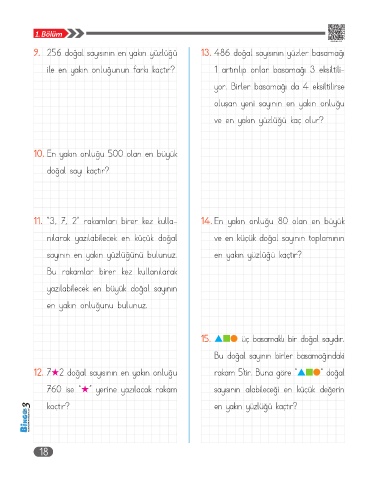 1. Bölüm
9. 256 doğal sayısının en yakın yüzlüğü
ile en yakın onluğunun farkı kaçtır?
10. En yakın onluğu 500 olan en büyük
doğal sayı kaçtır?
11. "3, 7, 2" rakamları birer kez kulla-
nılarak yazılabilecek en küçük doğal
sayının en yakın yüzlüğünü bulunuz.
Bu rakamlar birer kez kullanılarak
yazılabilecek en büyük doğal sayının
en yakın onluğunu bulunuz.
12. 7★2 doğal sayısının en yakın onluğu
760 ise "★" yerine yazılacak rakam
kaçtır?
13. 486 doğal sayısının yüzler basamağı
1 artırılıp onlar basamağı 3 eksiltili-
yor. Birler basamağı da 4 eksiltilirse
oluşan yeni sayının en yakın onluğu
ve en yakın yüzlüğü kaç olur?
14. En yakın onluğu 80 olan en büyük
ve en küçük doğal sayının toplamının
en yakın yüzlüğü kaçtır?
15. ▲■● üç basamaklı bir doğal sayıdır.
Bu doğal sayının birler basamağındaki
rakam 5'tir. Buna göre "▲■●" doğal
sayısının alabileceği en küçük değerin
en yakın yüzlüğü kaçtır?
BİNGO 3
18